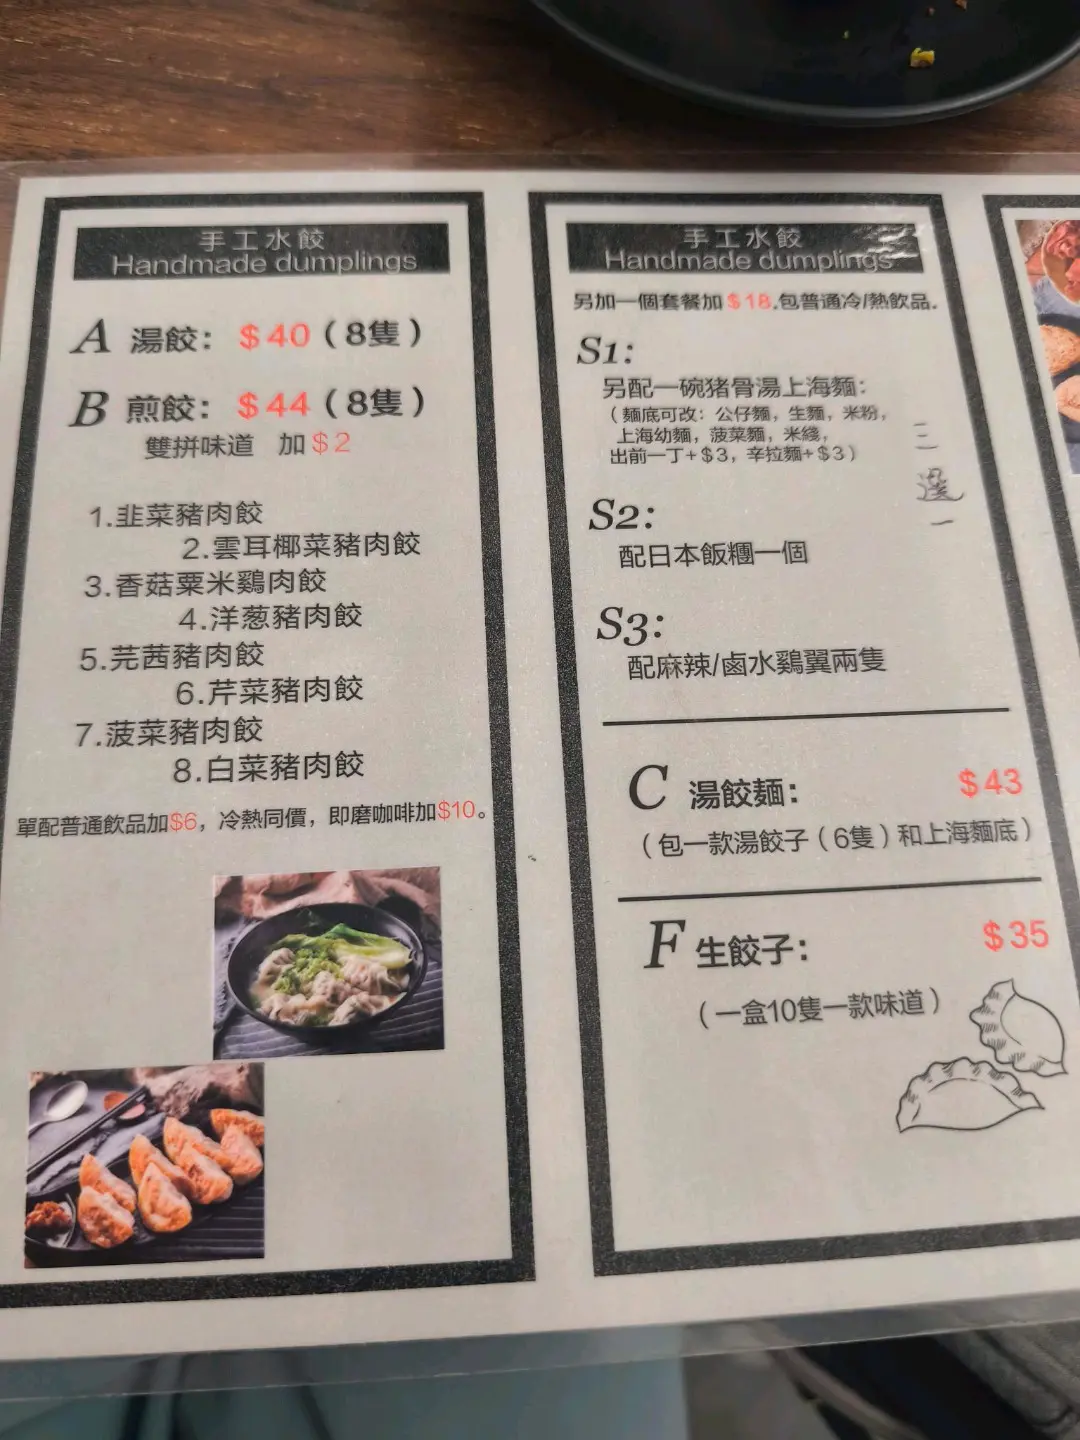 手工水餃
Handmade dumplings
A 湯餃：$40（8隻）
B 煎餃：$44（8隻）
雙拼味道 加$2
1.韭菜豬肉餃
2.雲耳椰菜豬肉餃
3.香菇粟米鷄肉餃
4.洋葱豬肉餃
5.芫茜豬肉餃
6.芹菜豬肉餃
7.菠菜豬肉餃
8.白菜豬肉餃
單配普通飲品加$6，冷熱同價，即磨咖啡加$10。
手工水餃
Handmade dumplings
另加一個套餐加$18.包普通冷/熱飲品.
S1:
另配一碗猪骨湯上海麵：
（麵底可改：公仔麵，生麵，米粉，
上海幼麵，菠菜麵，米綫，
出前一丁+$3，辛拉麵+$3）
三選一
S2:
配日本飯糰一個
S3:
配麻辣/鹵水鷄翼兩隻
C 湯餃麵： $43
（包一款湯餃子（6隻）和上海麵底）
F 生餃子： $35
（一盒10隻一款味道）